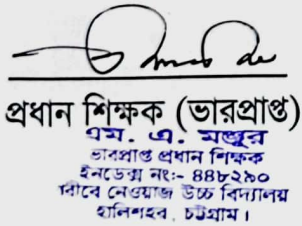 প্রধান শিক্ষক (ভারপ্রাপ্ত)
এম. এ. মঞ্জুর
ভারপ্রাপ্ত প্রধান শিক্ষক
ইনডেক্স নং:- ৪৪৮২৯০
রীবে নেওয়াজ উচ্চ বিদ্যালয়
হালিশহর, চট্টগ্রাম।